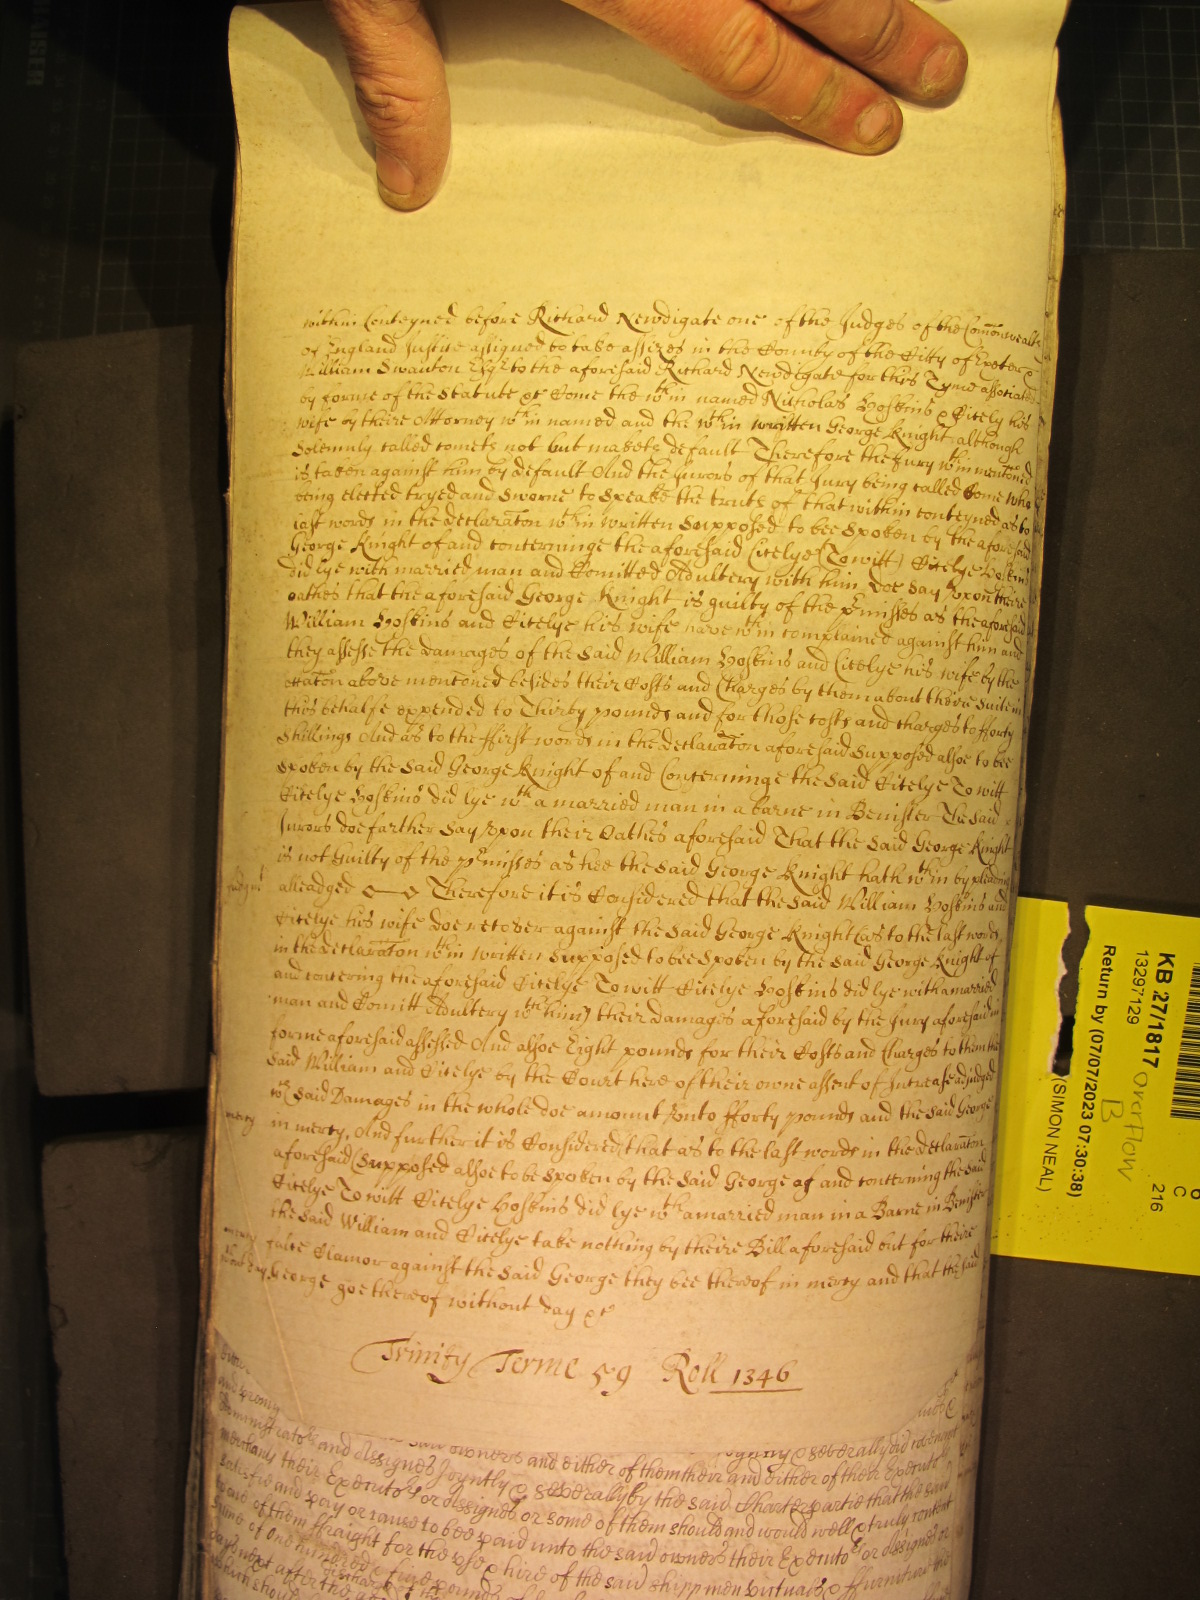 within Conteyned before Richard Newdigate one of the Judges of the Comonwealth
of England Justice assigned to take assizes in the County of the Citty of Exeter
William Swanton Esqr to the aforesaid Richard Newdigate for this Tyme associated
by forme of the Statute &c Come the wthin named Nicholas Hoskins & Citely his
wife by there Attorney wthin named and the wthin written George Knight although
Solemnly called cometh not but maketh default Therefore the Jury wthin mentoned
is taken against him by default And the Jurors of that Jury being called Come who
being elected tryed and Sworne to speake the truth of that within conteyned as to
last words in the declaraton wthin written Supposed to bee Spoken by the aforesaid
George Knight of and concerninge the aforesaid Citelye (To witt) Citelye Hoskins
did lye with married man and Comitted Adultery with him doe say Upon theire
oathes that the aforesaid George Knight is guilty of the pmisses as the aforesaid
William Hoskins and Citelye his wife have wthin complained against him and
they assesse the damages of the said William Hoskins and Citelye his wife by the
above mentoned besides their Costs and Charges by them about theire Suite in
this behalfe expended to Thirty pounds and for those costs and charges to fforty
shillings And as to the ffirst words in the declaraton aforesaid Supposed alsoe to bee
spoken by the said George Knight of and Concerninge the said Citelye To witt
Citelye Hoskins did lye wth a married man in a barne in Benister The said
Jurors doe farther say Upon their Oathes aforesaid That the said George Knight
is not Guilty of the pmisses as hee the said George Knight hath wthin by pleadinge
alleadged Therefore it is Considered that the said William Hoskins and
Citelye his wife doe recover against the said George Knight (as to the last words
in the declaraton wthin written Supposed to bee Spoken by the said George Knight of
and concering the aforesaid Citelye To witt Citelye Hoskins did lye with a married
man and Comitt Adultery wth him) their damages aforesaid by the Jury aforesaid in
forme aforesaid assessed And alsoe Eight pounds for their Costs and Charges to them the
said William and Citelye by the Court here of their owne assent of Increase adjudged
wch said Damages in the whole doe amount Unto fforty pounds and the said George
mercy in mercy, And further it is Considered that as to the last words in the declaraton
aforesaid (Supposed alsoe to be Spoken by the said George of and concerning the said
Citelye To witt Citelye Hoskins did lye wth a married man in a Barne in Benister
the said William and Citelye take nothing by theire Bill aforesaid but for theire
mercy false Clamor against the said George they bee thereof in mercy and that the said
George goe thereof without day &c
Trinity Terme 59 Roll 1346
said owners and either of them their and either of their Executors
Administrators and Assignes Joyntly & severally did covenant
merchants their Executors or Assignes or some of them should and would well & truly content
satisfie and pay or cause to bee paid unto the said owners their Executors or Assignes or
some of them ffraight for the use & hire of the said shipp men victualls & ffurniture
KB 27/1817
13297129
Overflow
B
Return by (07/07/2023 07:30:38)
(SIMON NEAL)
216
C